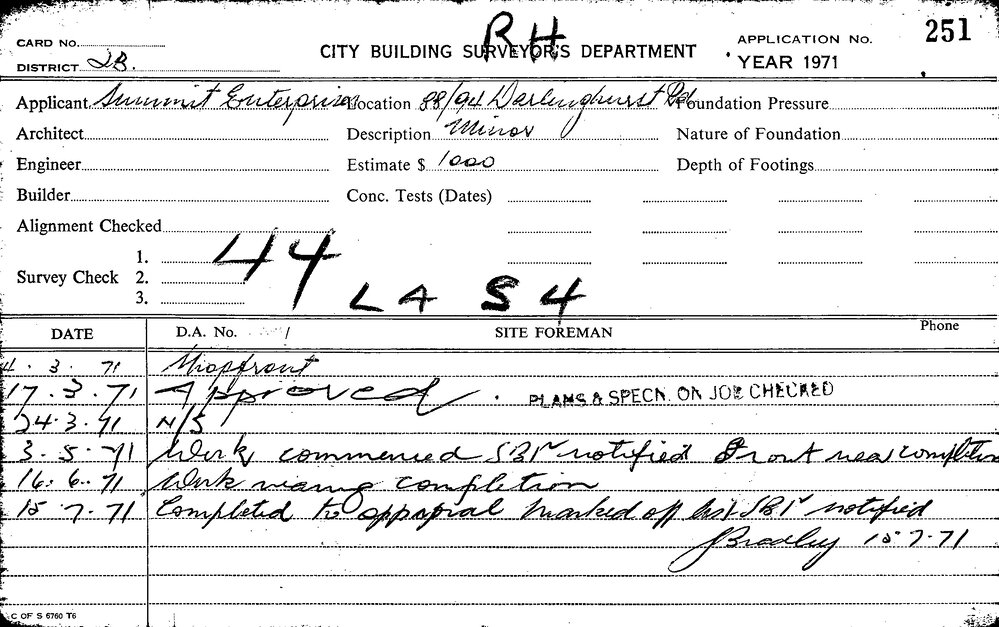 RH
CARD No. CITY BUILDING SURVEYOR'S DEPARTMENT APPLICATION No. 251
DISTRICT 2B. YEAR 1971
Applicant Summit Enterprises Location 88/94 Darlinghurst Rd Foundation Pressure
Architect Description Minor Nature of Foundation
Engineer Estimate $ 1000 Depth of Footings
Builder Conc. Tests (Dates)
Alignment Checked
1.
Survey Check 2.
3.
44
LA S4
DATE D.A. No. SITE FOREMAN Phone
4. 3. 71 Shopfront
17. 3. 71 Approved. PLANS & SPECN. ON JOB CHECKED
24. 3. 71 N/S
3. 5. 71 Work commenced SBIr notified Front near completion
16. 6. 71 Work nearing completion
15 7. 71 Completed to appopral marked off list SBIr notified
JBradley 15 7. 71
C OF S 6760 T6